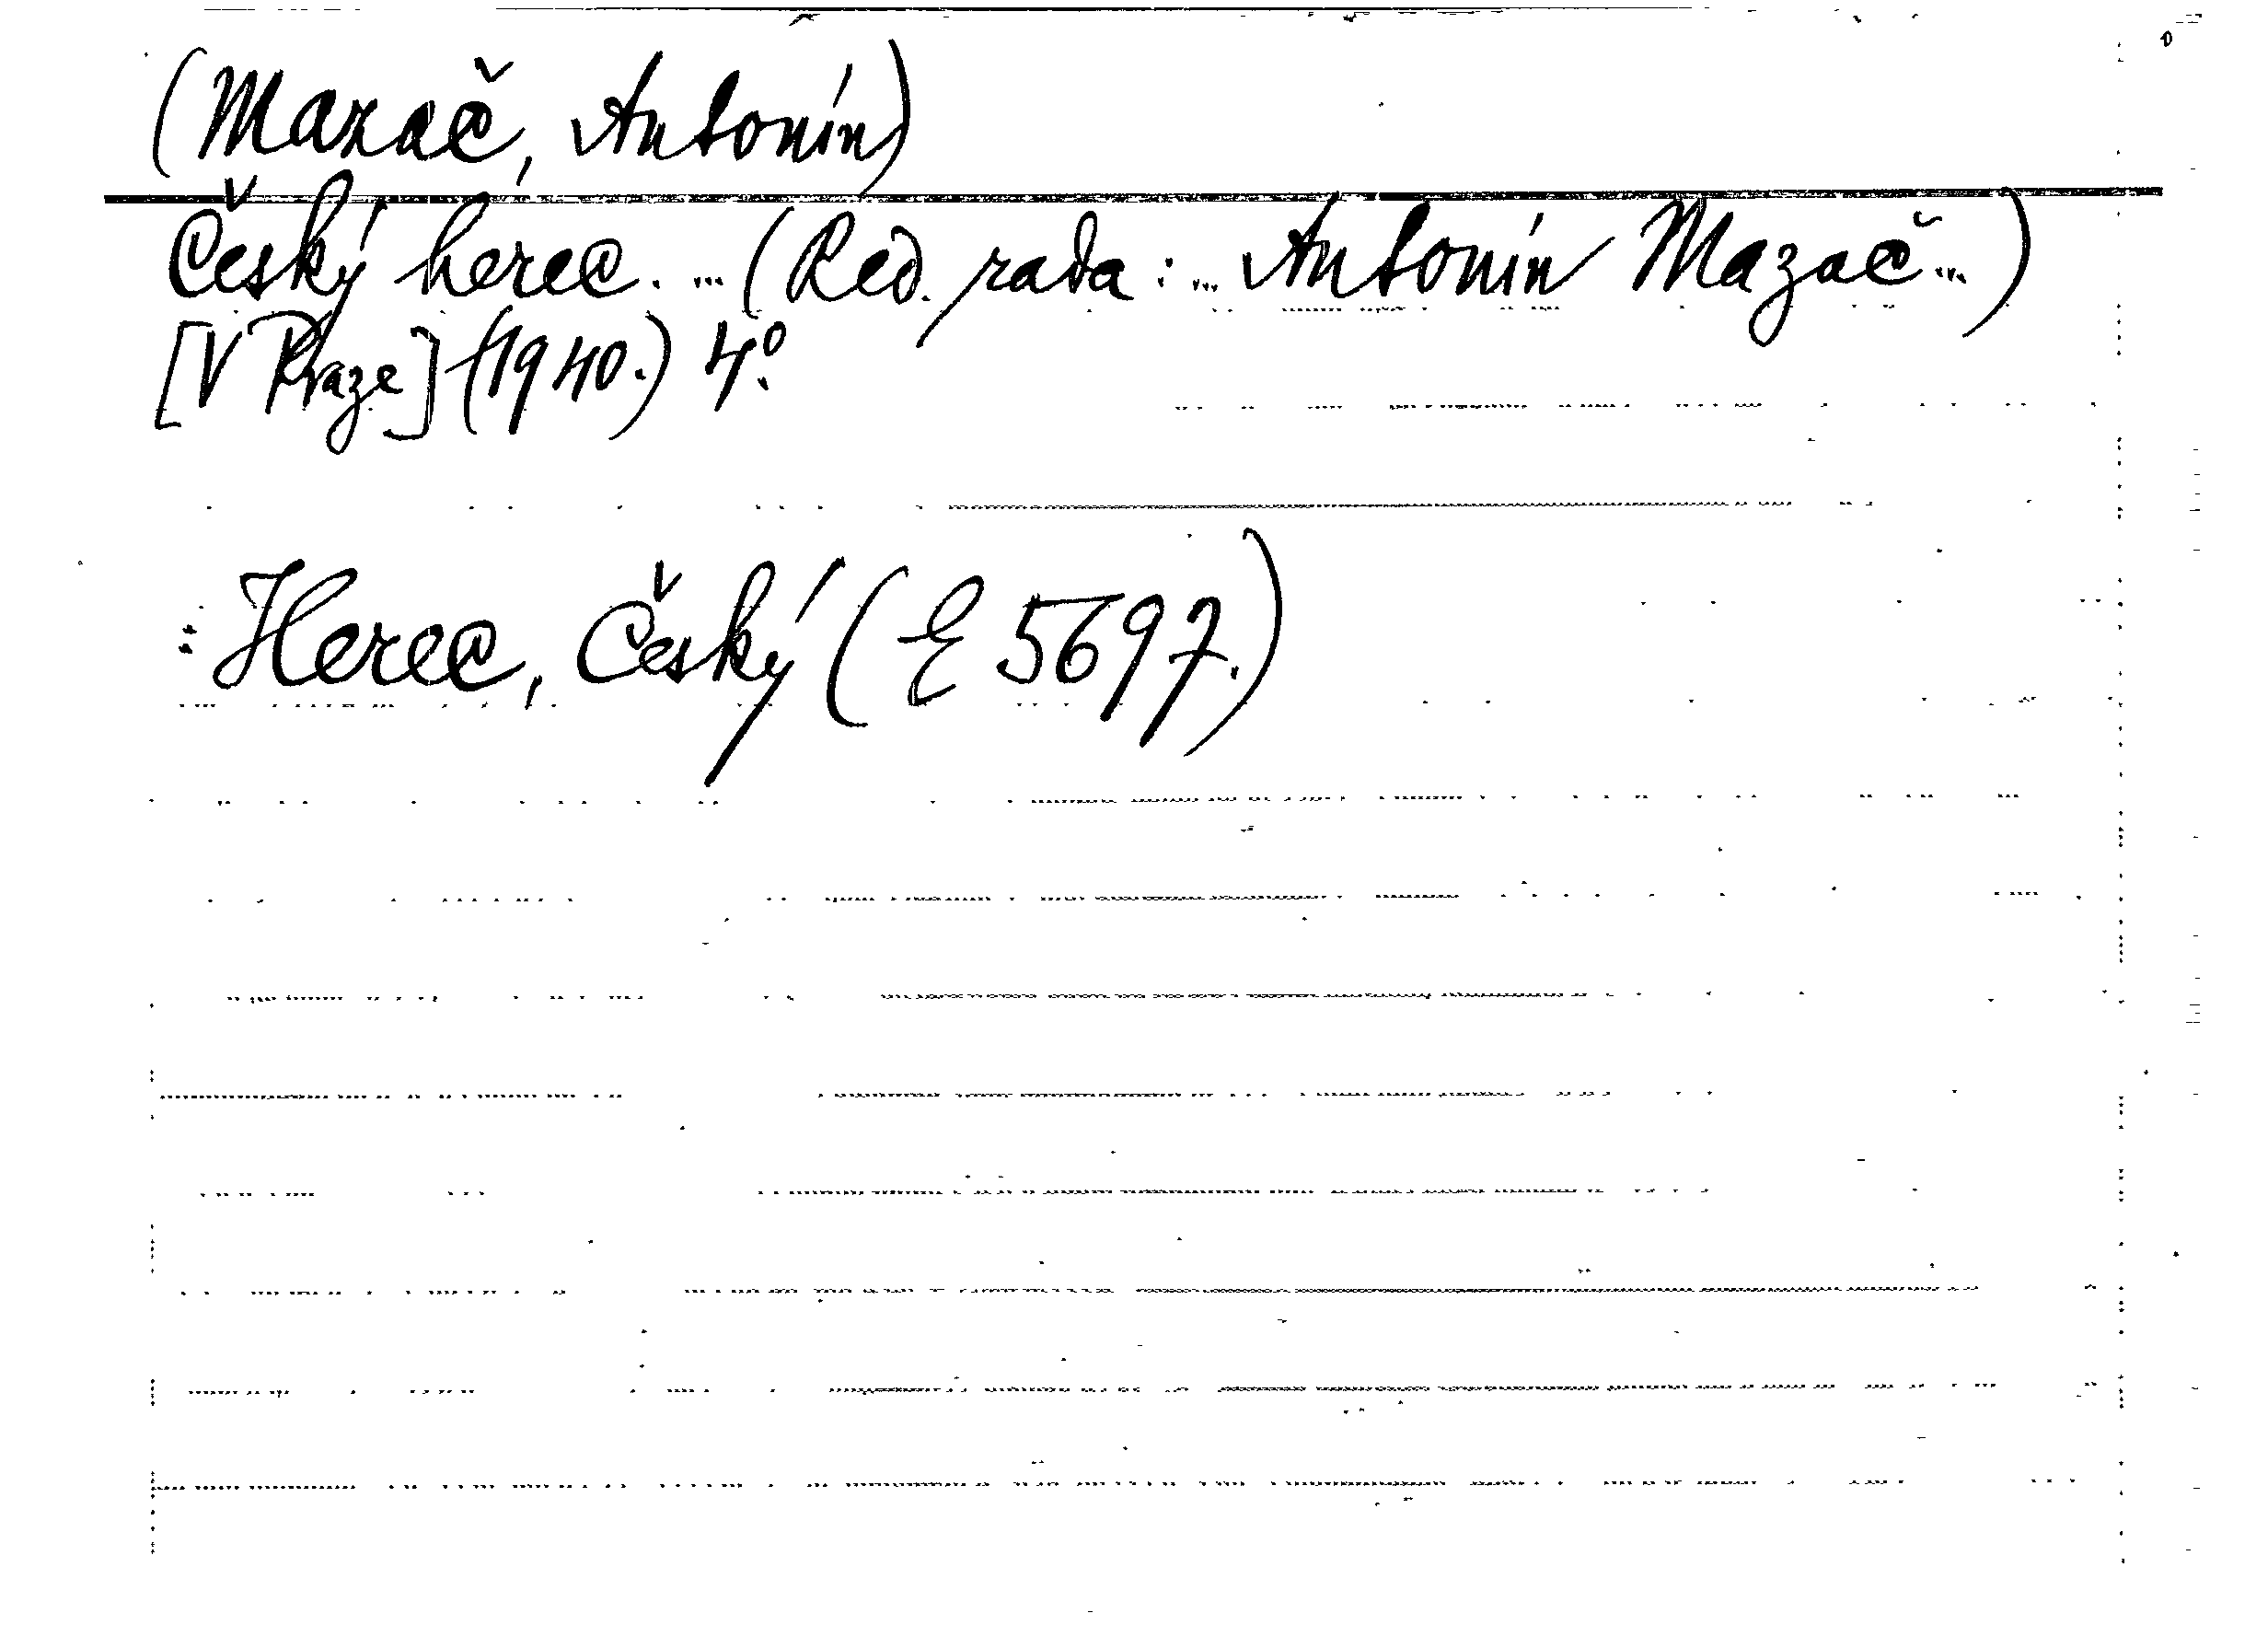 (Mazač, Antonín)
Český herec. ... (Red. rada: ... Antonín Mazač ...)
[V Praze] (1940.) 4°.
: Herec, Český (E 5697.)